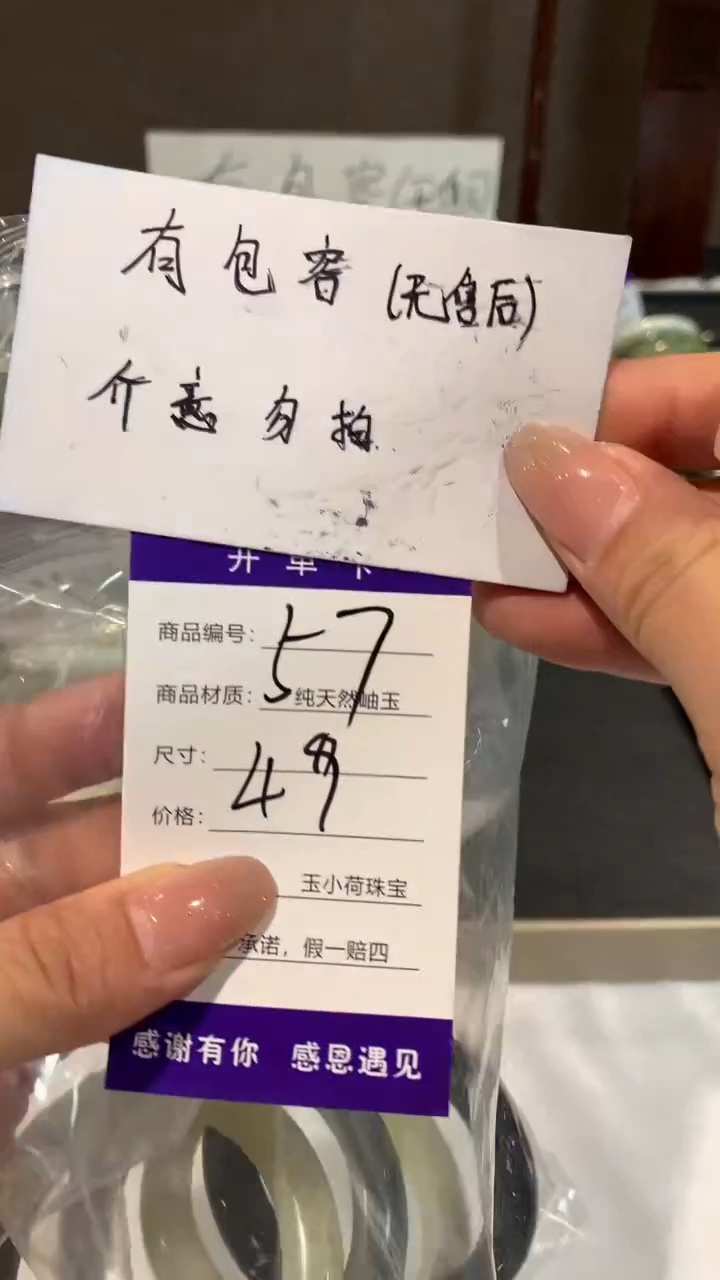 有包容(无售后)
介意勿拍
开单卡
商品编号：57
商品材质：纯天然岫玉
尺寸：
价格：49
玉小荷珠宝
承诺，假一赔四
感谢有你 感恩遇见